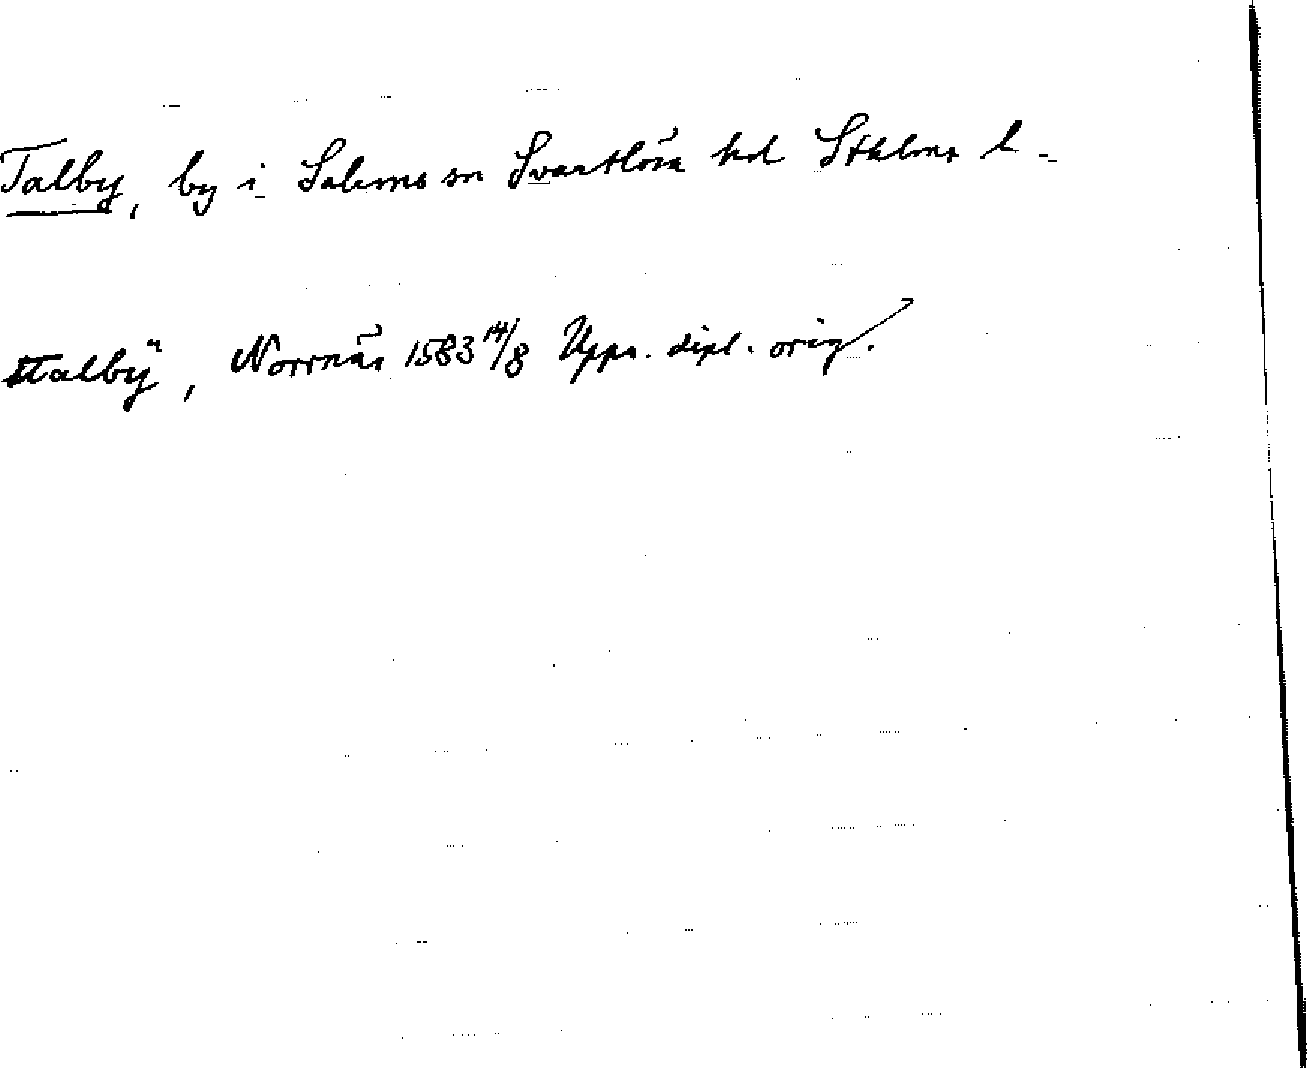 Talby, by i Salems sn Svartlösa hd Sthlms l.
Talbÿ, Norrnäs 1583 14/8 Upps. dipl. orig.